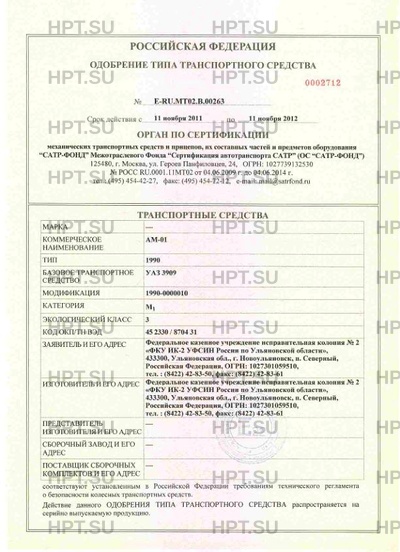 РОССИЙСКАЯ ФЕДЕРАЦИЯ
ОДОБРЕНИЕ ТИПА ТРАНСПОРТНОГО СРЕДСТВА
0002712
№ E-RU.MT02.B.00263
Срок действия с 11 ноября 2011 по 11 ноября 2012
ОРГАН ПО СЕРТИФИКАЦИИ
механических транспортных средств и прицепов, их составных частей и предметов оборудования
“САТР-ФОНД” Межотраслевого Фонда “Сертификация автотранспорта САТР” (ОС “САТР-ФОНД”)
125480, г. Москва, ул. Героев Панфиловцев, 24, ОГРН: 1027739132530
№ РОСС RU.0001.11МТ02 от 04.06.2009 г. до 04.06.2014 г.
тел.: (495) 454-42-27, факс: (495) 454-72-12, e-mail: mail@satrfond.ru
ТРАНСПОРТНЫЕ СРЕДСТВА
МАРКА —
КОММЕРЧЕСКОЕ НАИМЕНОВАНИЕ АМ-01
ТИП 1990
БАЗОВОЕ ТРАНСПОРТНОЕ СРЕДСТВО УАЗ 3909
МОДИФИКАЦИЯ 1990-0000010
КАТЕГОРИЯ M1
ЭКОЛОГИЧЕСКИЙ КЛАСС 3
КОД ОКП/ТН ВЭД 45 2330 / 8704 31
ЗАЯВИТЕЛЬ И ЕГО АДРЕС Федеральное казенное учреждение исправительная колония № 2
«ФКУ ИК-2 УФСИН России по Ульяновской области»,
433300, Ульяновская обл., г. Новоульяновск, п. Северный,
Российская Федерация, ОГРН: 1027301059510,
тел. : (8422) 42-83-50, факс: (8422) 42-83-61
ИЗГОТОВИТЕЛЬ И ЕГО АДРЕС Федеральное казенное учреждение исправительная колония № 2
«ФКУ ИК-2 УФСИН России по Ульяновской области»,
433300, Ульяновская обл., г. Новоульяновск, п. Северный,
Российская Федерация, ОГРН: 1027301059510,
тел. : (8422) 42-83-50, факс: (8422) 42-83-61
ПРЕДСТАВИТЕЛЬ ИЗГОТОВИТЕЛЯ И ЕГО АДРЕС —
СБОРОЧНЫЙ ЗАВОД И ЕГО АДРЕС —
ПОСТАВЩИК СБОРОЧНЫХ КОМПЛЕКТОВ И ЕГО АДРЕС —
соответствуют установленным в Российской Федерации требованиям технического регламента
о безопасности колесных транспортных средств.
Действие данного ОДОБРЕНИЯ ТИПА ТРАНСПОРТНОГО СРЕДСТВА распространяется на
серийно выпускаемую продукцию.
HPT.SU